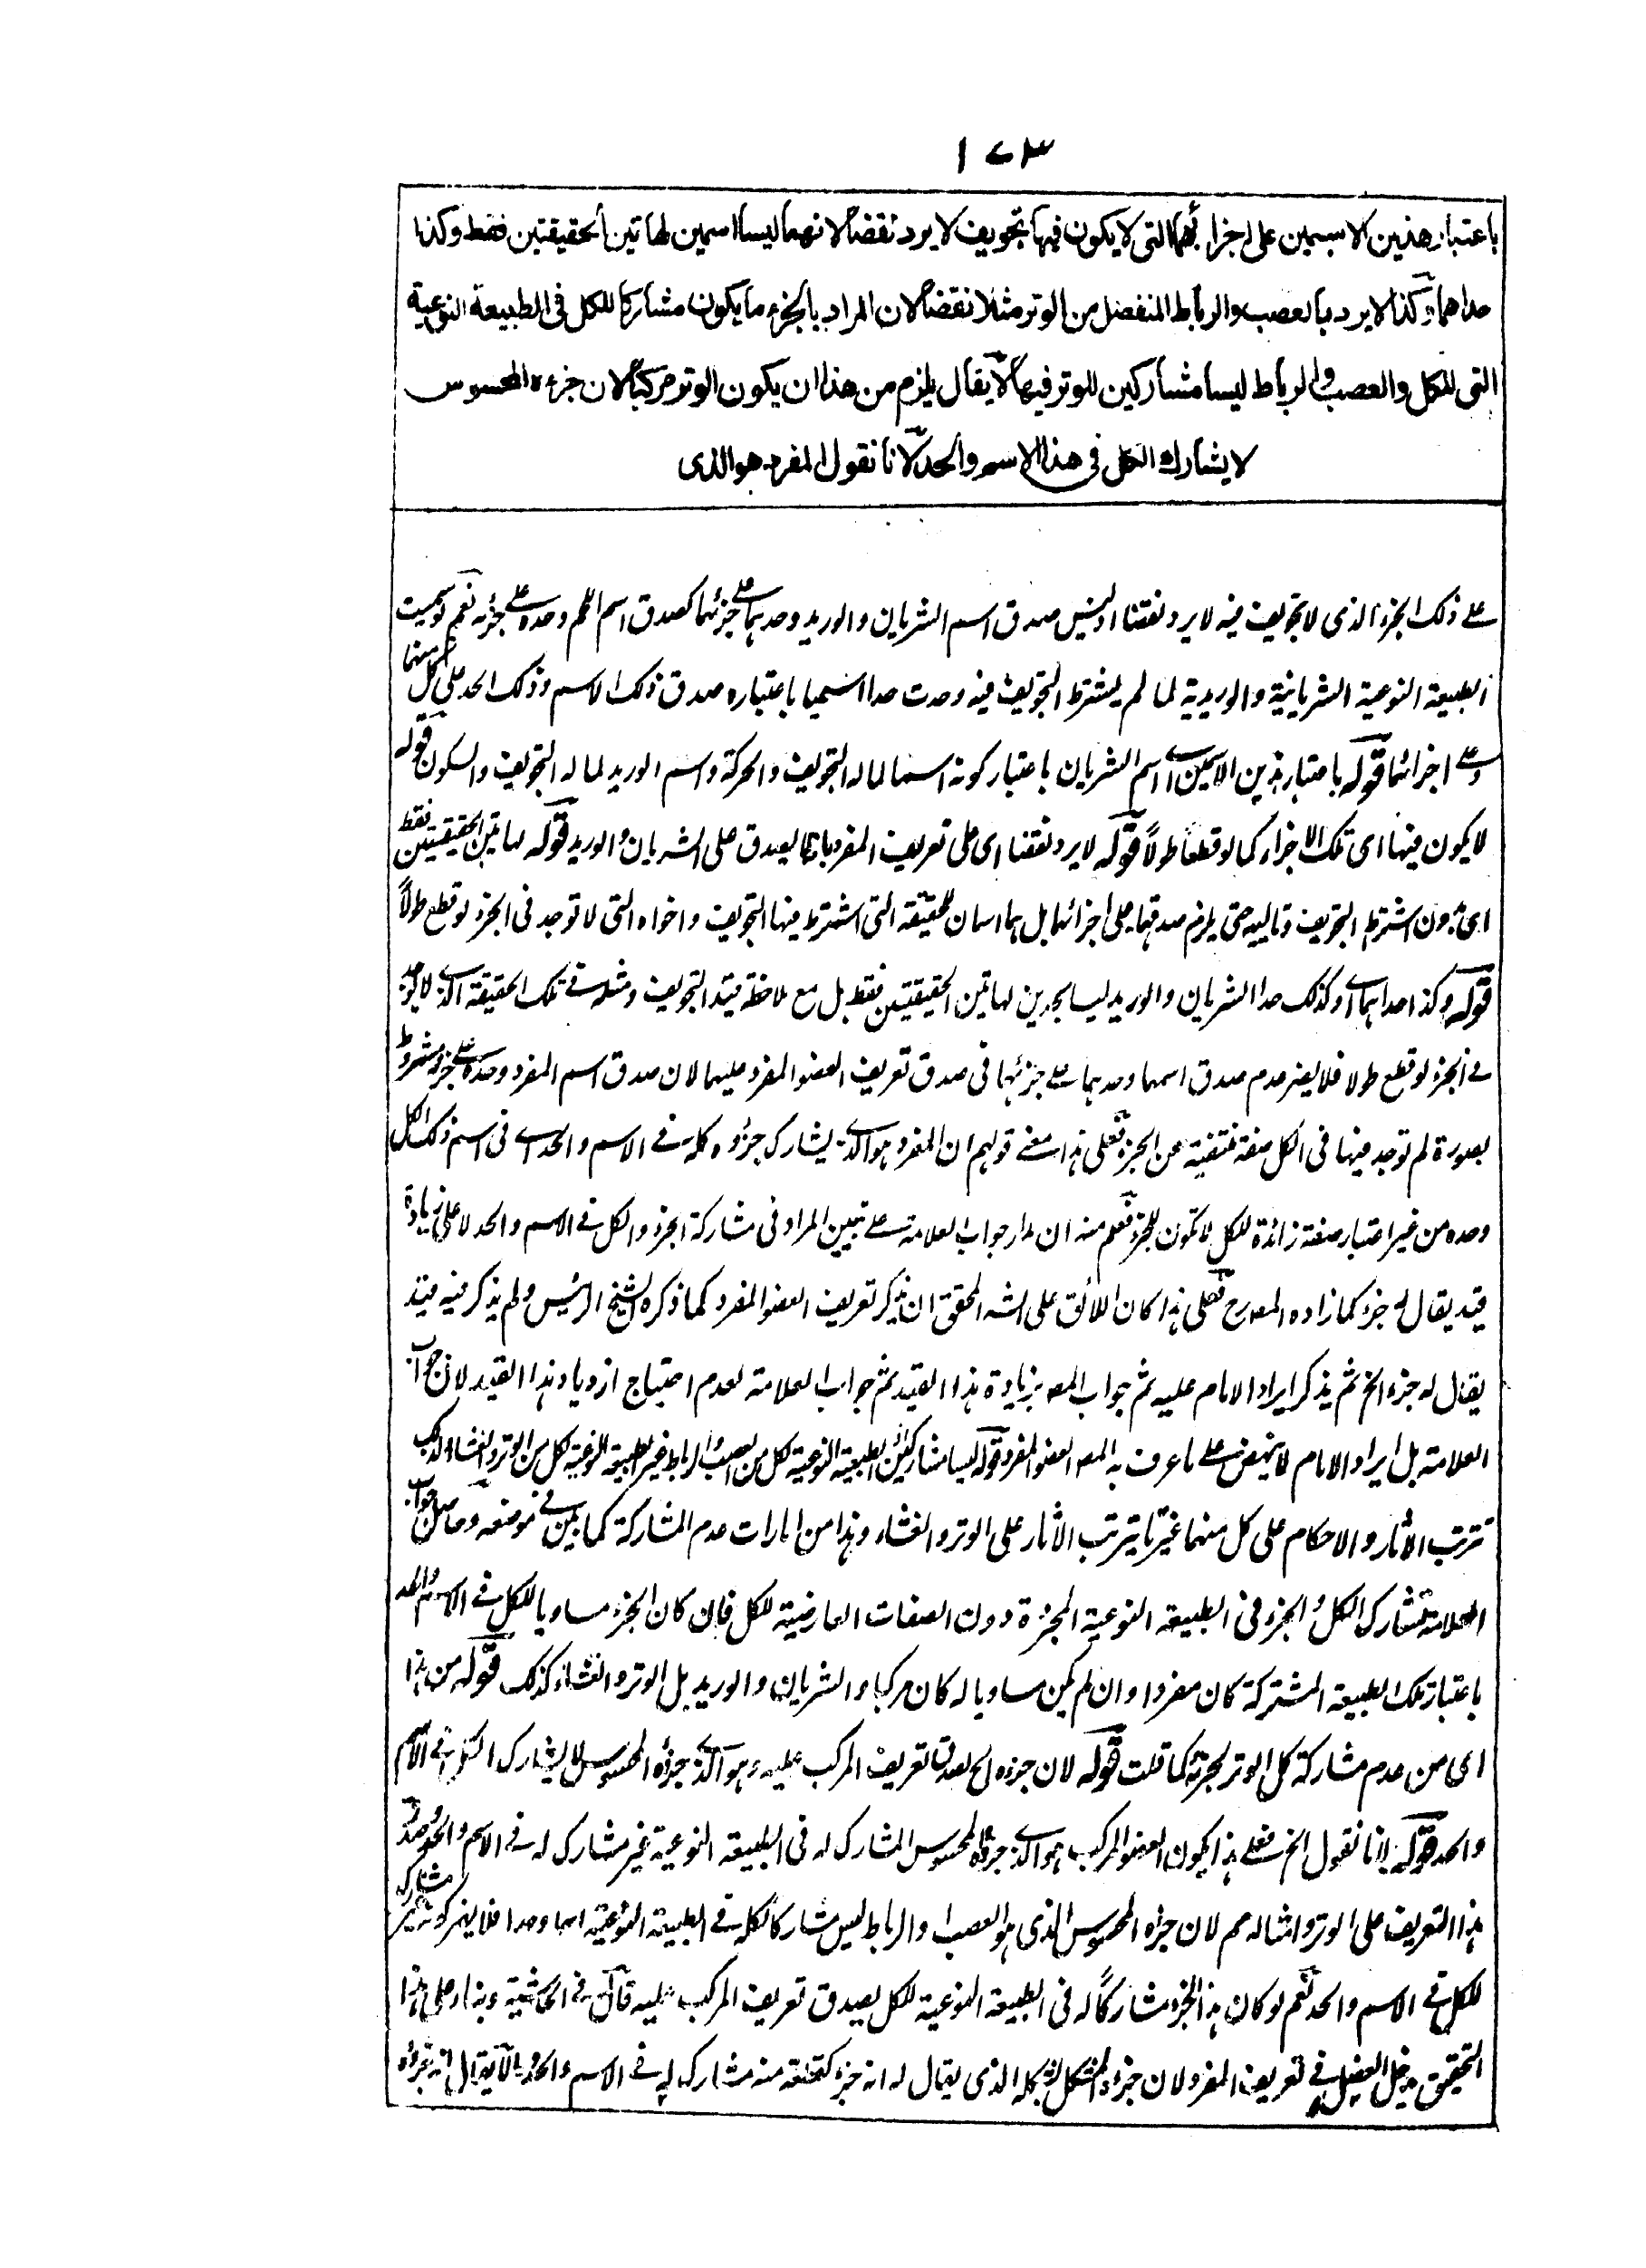 ١٧٣
باعتبار هذين الاسمين على اجزائهما التى لا يكون فيها تجويف لا يرد نقضا لانهما ليسا اسمين لهاتين الحقيقتين فقط وكذا
حداهما وكذا لا يرد بالعصب والرباط المنفصل من الوتر مثلا نقضا لان المراد بالجزء ما يكون مشاركا للكل فى الطبيعة النوعية
التى للكل والعصب والرباط ليسا مشاركين للوتر فيها لا يقال يلزم من هذا ان يكون الوتر مركبا لان جزءه المحسوس
لا يشارك الكل فى هذا الاسم والحد لانا نقول المفرد هو الذى
على ذلك الجزء الذى لا تجويف فيه لا يرد نقضا اذ ليس صدق اسم الشريان والوريد وحدهما على جزئهما كصدق اسم اللحم وحده على جزئه نعم لو سميت
الطبيعة النوعية الشريانية والوريدية لما لم يشترط التجويف فيه وحدت حدا اسميا باعتباره صدق ذلك الاسم وذلك الحد على كل منهما
وعلى اجزائهما قوله باعتبار هذين الاسمين اى اسم الشريان باعتبار كونه اسما لما له التجويف والحركة واسم الوريد لما له التجويف والسكون قوله
لا يكون فيها اى تلك الاجزاء كما لو قطعا طولاً قوله لا يرد نقضا اى على تعريف المفرد بانه لا يصدق على الشريان والوريد قوله لهاتين الحقيقتين فقط
اى بدون اشتراط التجويف وتالييه حتى يلزم صدقها على اجزائهما بل هما اسمان للحقيقة التى اشترط فيها التجويف واخواه التى لا توجد فى الجزء لو قطع طولاً
قوله وكذا حداهما اى وكذلك حدا الشريان والوريد ليسا بحدين لهاتين الحقيقتين فقط بل مع ملاحظة قيد التجويف ومثله فى تلك الحقيقة الذى لا يوجد
فى الجزء لو قطع طولا فلا يضر عدم صدق اسمهما وحدهما على جزئهما فى صدق تعريف العضو المفرد عليهما لان صدق اسم المفرد وحده على جزئه مشروط
بصورة لم توجد فيها فى الكل صفة منتفية عن الجزء فعلى هذا معنى قولهم ان المفرد هو الذى يشارك جزؤه كله فى الاسم والحد اى فى اسم ذلك الكل
وحده من غير اعتبار صفة زائدة للكل لا تكون للجزء فعلم منه ان مدار جواب العلامة على تبيين المراد فى مشاركة الجزء والكل فى الاسم والحد لا على زيادة
قيد يقال له جزء كما زاده المصرح فعلى هذا كان اللائق على الشه المحقق ان يذكر تعريف العضو المفرد كما ذكره الشيخ الرئيس ولم يذكر فيه قيد
يقال له جزء الخ ثم يذكر ايراد الامام عليه ثم جواب المصه بزيادة هذا القيد ثم جواب العلامة لعدم احتياج ازدياد هذا القيد لان جواب
العلامة بل ايراد الامام لا ينهض على ما عرف به المصه العضو المفرد قوله ليسا مشاركين الطبيعة النوعية لكل من العصب والرباط غير الطبيعة النوعية لكل من الوتر والغشاء ولذلك
تترتب الآثار والاحكام على كل منهما غير ما يترتب الآثار على الوتر والغشاء وهذا من امارات عدم المشاركة كما بين فى موضعه وحاصل جواب
العلامة تشارك الكل والجزء فى الطبيعة النوعية المجزة دون الصفات العارضية للكل فان كان الجزء مساويا للكل فى الاسم والحد
باعتبار تلك الطبيعة المشتركة كان مفردا وان لم يكن مساويا له كان مركبا والشريان والوريد بل الوتر والغشاء كذلك قوله من هذا
اى من عدم مشاركة كل الوتر لجزئه كما قلت قوله لان جزءه الخ لصدق تعريف المركب عليه وهو الذى جزؤه المحسوس لا يشارك الكل فى الاسم
والحد قوله لانا نقول الخ فعلى هذا يكون العضو المركب هو الذى جزؤه المحسوس المشارك له فى الطبيعة النوعية غير مشارك له فى الاسم والحد وصدق
هذا التعريف على الوتر وامثاله مم لان جزءه المحسوس الذى هو العصب والرباط ليس مشاركا لكله فى الطبيعة النوعية اسما وحدا فلا يضر كونه غير مشارك
للكل فى الاسم والحد نعم لو كان هذا الجزء مشاركاً له فى الطبيعة النوعية للكل يصدق تعريف المركب عليه قال فى الحاشية وبناء على هذا
التحقيق يدخل العضل فى تعريف المفرد لان جزء لكله الذى يقال له انه جزء كقطعة منه مشارك له فى الاسم والحد لا يقال انه جزؤه